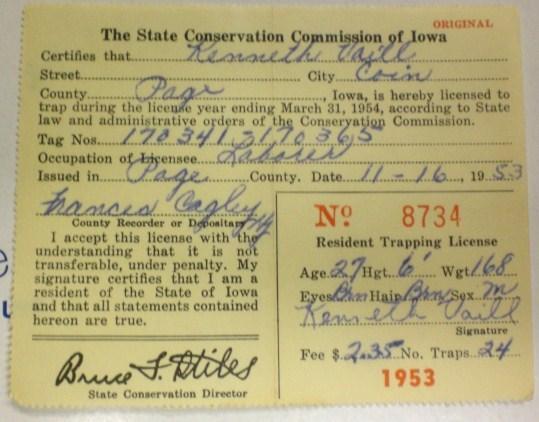 ORIGINAL
The State Conservation Commission of Iowa
Certifies that Kenneth Vaill
Street City Coin
County Page, Iowa, is hereby licensed to
trap during the license year ending March 31, 1954, according to State
law and administrative orders of the Conservation Commission.
Tag Nos. 170341 3170365
Occupation of Licensee Laborer
Issued in Page County. Date 11-16, 1953
Frances Cagley
County Recorder or Depositary
I accept this license with the
understanding that it is not
transferable, under penalty. My
signature certifies that I am a
resident of the State of Iowa
and that all statements contained
hereon are true.
Bruce F. Stiles
State Conservation Director
No 8734
Resident Trapping License
Age 27 Hgt. 6' Wgt 168
Eyes Brn Hair Brn Sex M
Kenneth Vaill
Signature
Fee $ 2.35 No. Traps 24
1953